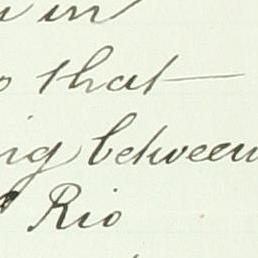 in
that
between
Rio